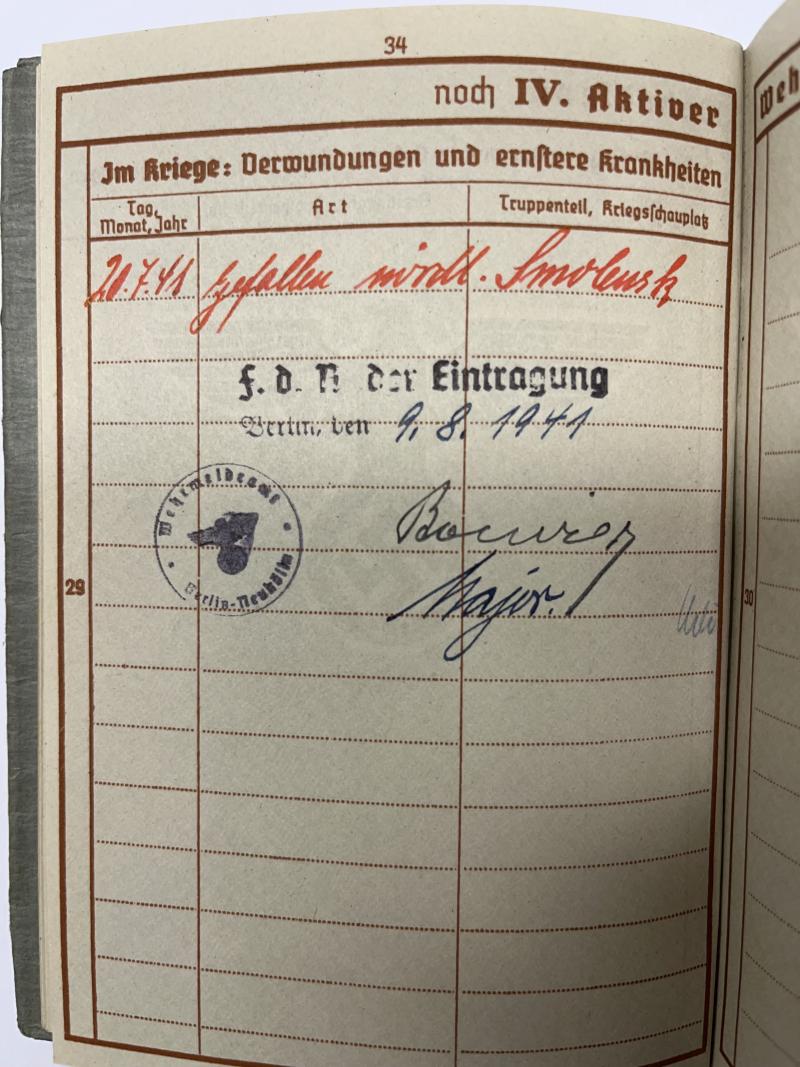 34
noch IV. Aktiver
Im Kriege: Verwundungen und ernstere Krankheiten
Tag, Monat, Jahr
Art
Truppenteil, Kriegsschauplatz
20.7.41 gefallen nördl. Smolensk
F. d. R der Eintragung
Berlin, den 9. 8. 1941
Wehrmeldeamt
Berlin-Neukölln
Major.
29
30
weh